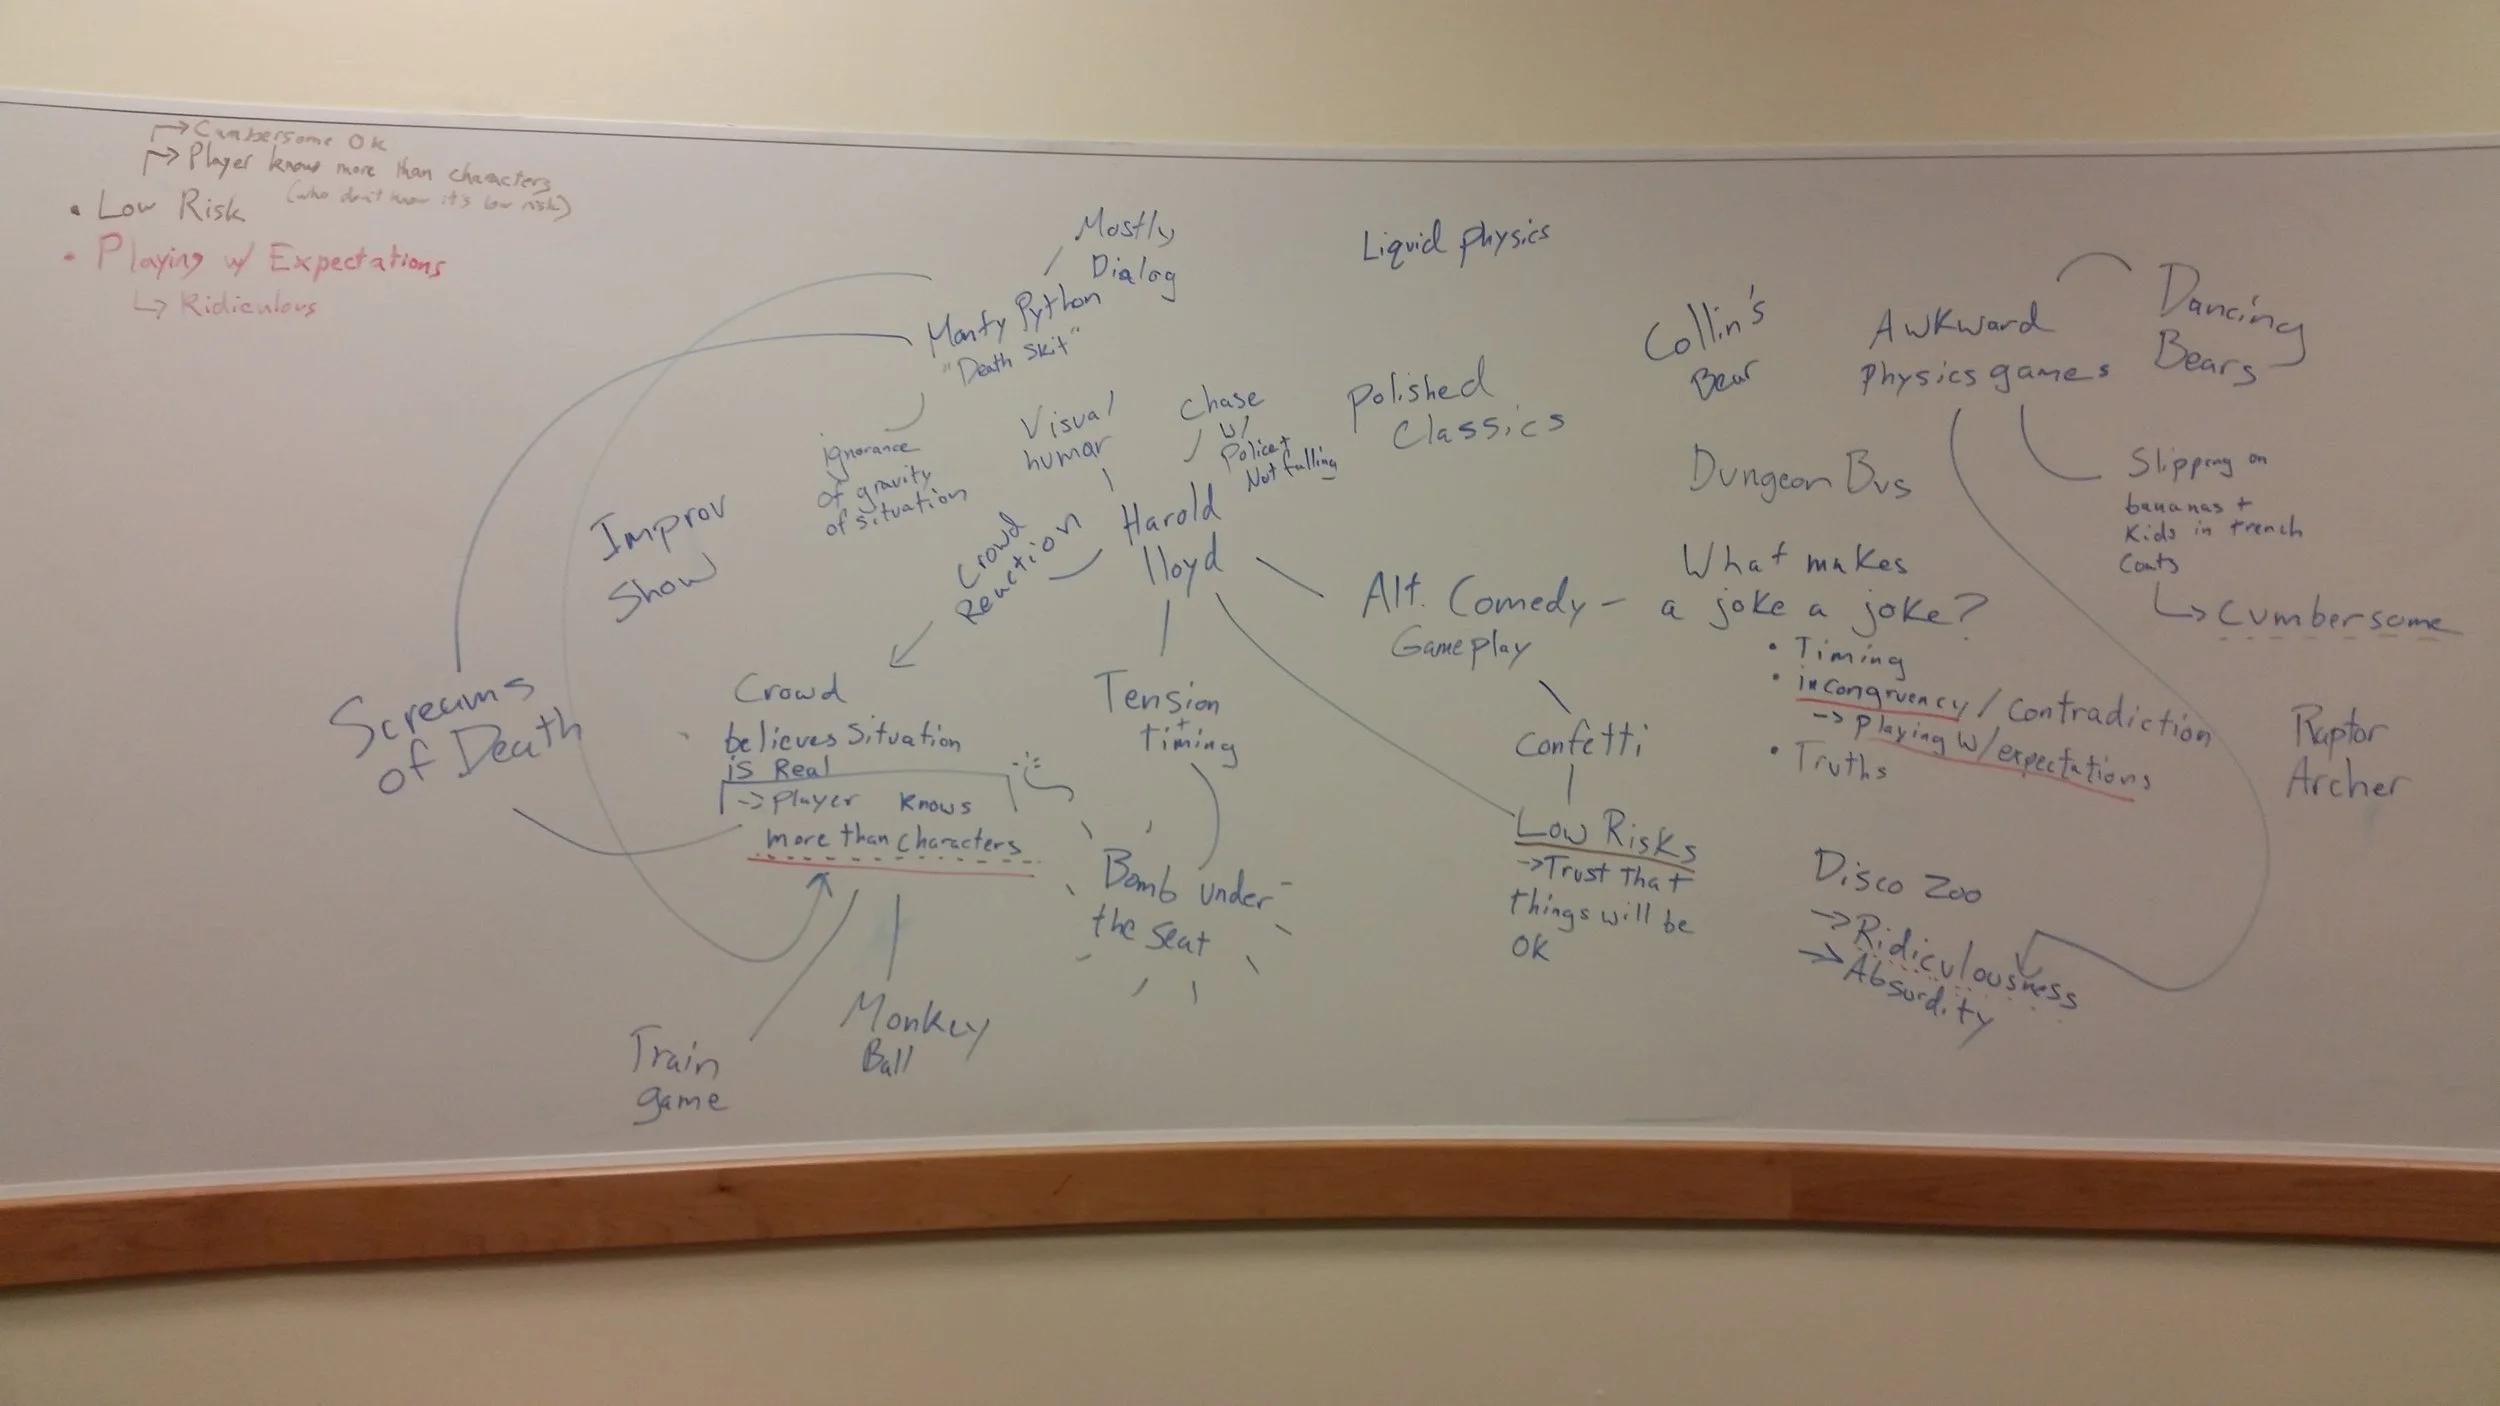 → Cumbersome OK
→ Player knows more than characters
(who don't know it's low risk)
• Low Risk
• Playing w/ Expectations
↳ Ridiculous
Mostly
Dialog
Monty Python
"Death Skit"
ignorance
of gravity
of situation
Improv
Show
Visual
humor
Chase
w/
Police +
Not falling
Crowd
Reaction
Harold
lloyd
Screams
of Death
Crowd
believes situation
is Real
-> Player knows
more than characters
Tension
+
timing
Bomb under
the seat
Train
game
Monkey
Ball
Liquid physics
Polished
Classics
Alt. Comedy –
Gameplay
Confetti
Low Risks
-> Trust that
things will be
OK
Collin's
Bear
Dungeon Bus
What makes
a joke a joke?
• Timing
• incongruency / contradiction
-> playing w/ expectations
• Truths
Disco Zoo
-> Ridiculousness
-> Absurdity
Awkward
Physics games
Dancing
Bears
Slipping on
bananas +
Kids in trench
Coats
↳ Cumbersome
Raptor
Archer